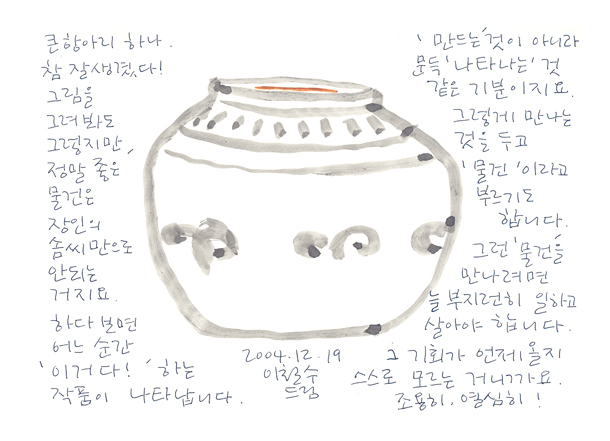 큰 항아리 하나.
참 잘생겼다!
그림을
그려봐도
그렇지만,
'정말 좋은'
물건은
장인의
솜씨만으로
안되는
거지요.
하다 보면
어느 순간
'이거다!' 하는
작품이 나타납니다.
'만드는' 것이 아니라
문득 '나타나는' 것
같은 기분이지요.
그렇게 만나는
것을 두고
'물건'이라고
부르기도
합니다.
그런 '물건'을
만나려면
늘 부지런히 일하고
살아야 합니다.
그 기회가 언제올지
스스로 모르는 거니까요.
조용히, 열심히!
2004.12.19
이철수
드림